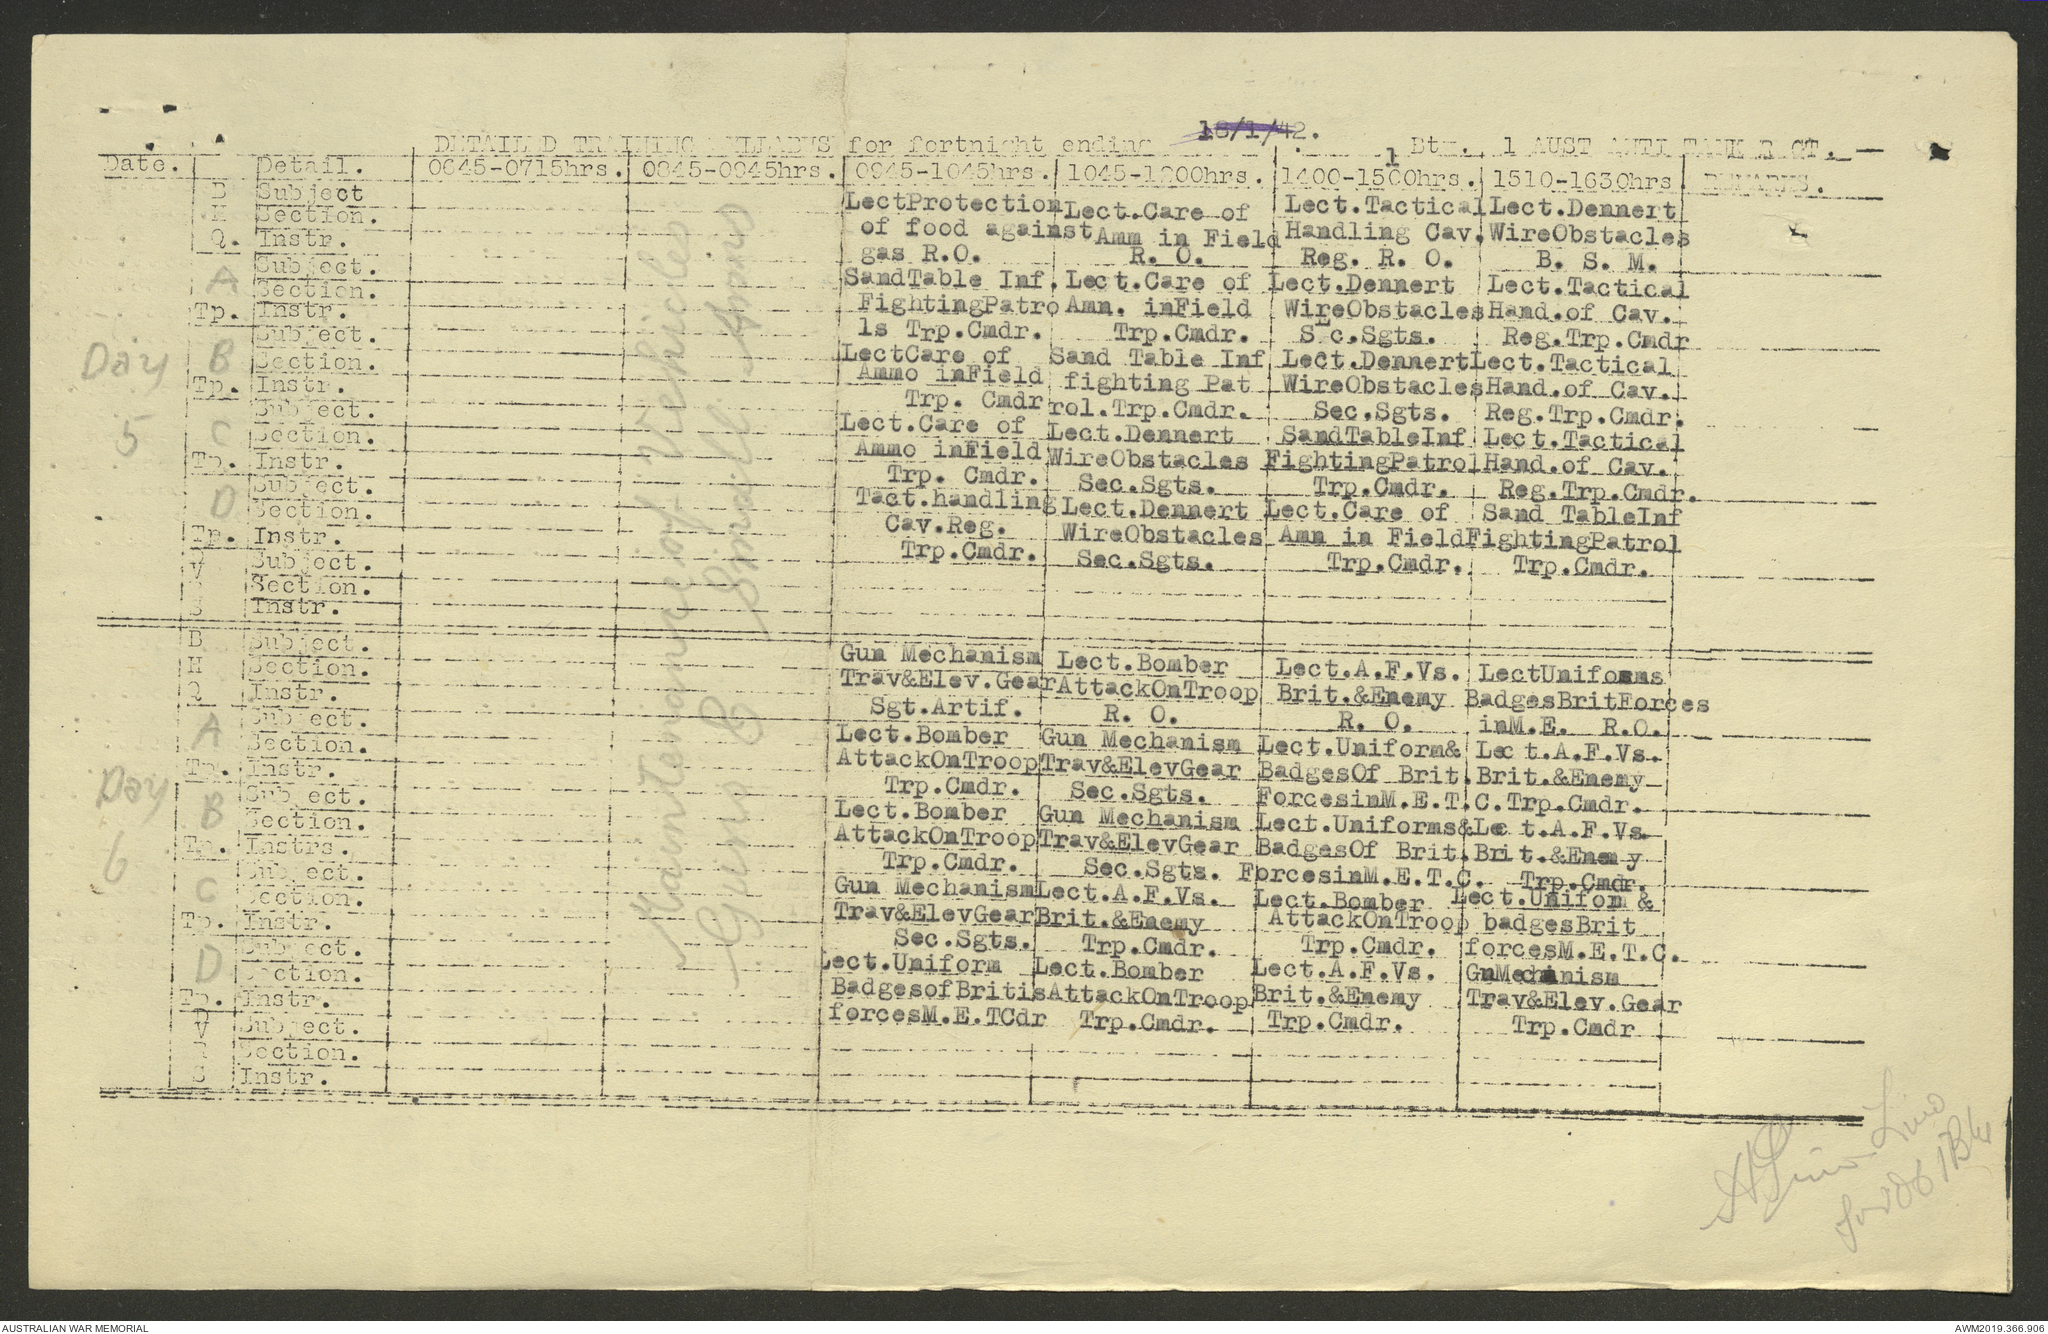 DETAILED TRAINING SYLLABUS for fortnight ending 18/1/42. 1 Bty. 1 AUST ANTI TANK REGT.
Date. Detail. 0645-0715hrs. 0845-0945hrs. 0945-1045hrs. 1045-1200hrs. 1400-1500hrs. 1510-1630hrs. REMARKS.
Day 5
Maintenance of Vehicles
Guns & Small Arms
B Subject LectProtection Lect.Care of Lect.Tactical Lect.Dennert
H Section. of food against Amm in Field Handling Cav. WireObstacles
Q. Instr. gas R.O. R. O. Reg. R. O. B. S. M.
A Subject. SandTable Inf. Lect.Care of Lect.Dennert Lect.Tactical
Section. FightingPatro Amn. inField WireObstacles Hand.of Cav.
Tp. Instr. ls Trp.Cmdr. Trp.Cmdr. Sec.Sgts. Reg.Trp.Cmdr
B Subject. LectCare of Sand Table Inf Lect.Dennert Lect.Tactical
Section. Ammo inField fighting Pat WireObstacles Hand.of Cav.
Tp. Instr. Trp. Cmdr rol.Trp.Cmdr. Sec.Sgts. Reg.Trp.Cmdr.
C Subject. Lect.Care of Lect.Dennert SandTableInf Lect.Tactical
Section. Ammo inField WireObstacles FightingPatrol Hand.of Cav.
Tp. Instr. Trp. Cmdr. Sec.Sgts. Trp.Cmdr. Reg.Trp.Cmdr.
D Subject. Tact.handling Lect.Dennert Lect.Care of Sand TableInf
Section. Cav.Reg. WireObstacles Amn in Field FightingPatrol
Tp. Instr. Trp.Cmdr. Sec.Sgts. Trp.Cmdr. Trp.Cmdr.
V Subject.
Section.
S Instr.
Day 6
B Subject. Gun Mechanism Lect.Bomber Lect.A.F.Vs. LectUniforms
H Section. Trav&Elev.Gear AttackOnTroop Brit.&Enemy BadgesBritForces
Q Instr. Sgt.Artif. R. O. R. O. inM.E. R.O.
A Subject. Lect.Bomber Gun Mechanism Lect.Uniform& Lect.A.F.Vs.
Section. AttackOnTroop Trav&ElevGear BadgesOf Brit. Brit.&Enemy
Tp. Instr. Trp.Cmdr. Sec.Sgts. ForcesinM.E.T.C. Trp.Cmdr.
B Subject. Lect.Bomber Gun Mechanism Lect.Uniforms& Lect.A.F.Vs.
Section. AttackOnTroop Trav&ElevGear BadgesOf Brit. Brit.&Enemy
Tp. Instrs. Trp.Cmdr. Sec.Sgts. ForcesinM.E.T.C. Trp.Cmdr.
C Subject. Gun Mechanism Lect.A.F.Vs. Lect.Bomber Lect.Uniform &
Section. Trav&ElevGear Brit.&Enemy AttackOnTroop badgesBrit
Tp. Instr. Sec.Sgts. Trp.Cmdr. Trp.Cmdr. forcesM.E.T.C.
D Subject. Lect.Uniform Lect.Bomber Lect.A.F.Vs. GunMechinism
Section. BadgesofBritis AttackOnTroop Brit.&Enemy Trav&Elev.Gear
Tp. Instr. forcesM.E.TCdr Trp.Cmdr. Trp.Cmdr. Trp.Cmdr
V Subject.
R Section.
S Instr.
AUSTRALIAN WAR MEMORIAL
AWM2019.366.906